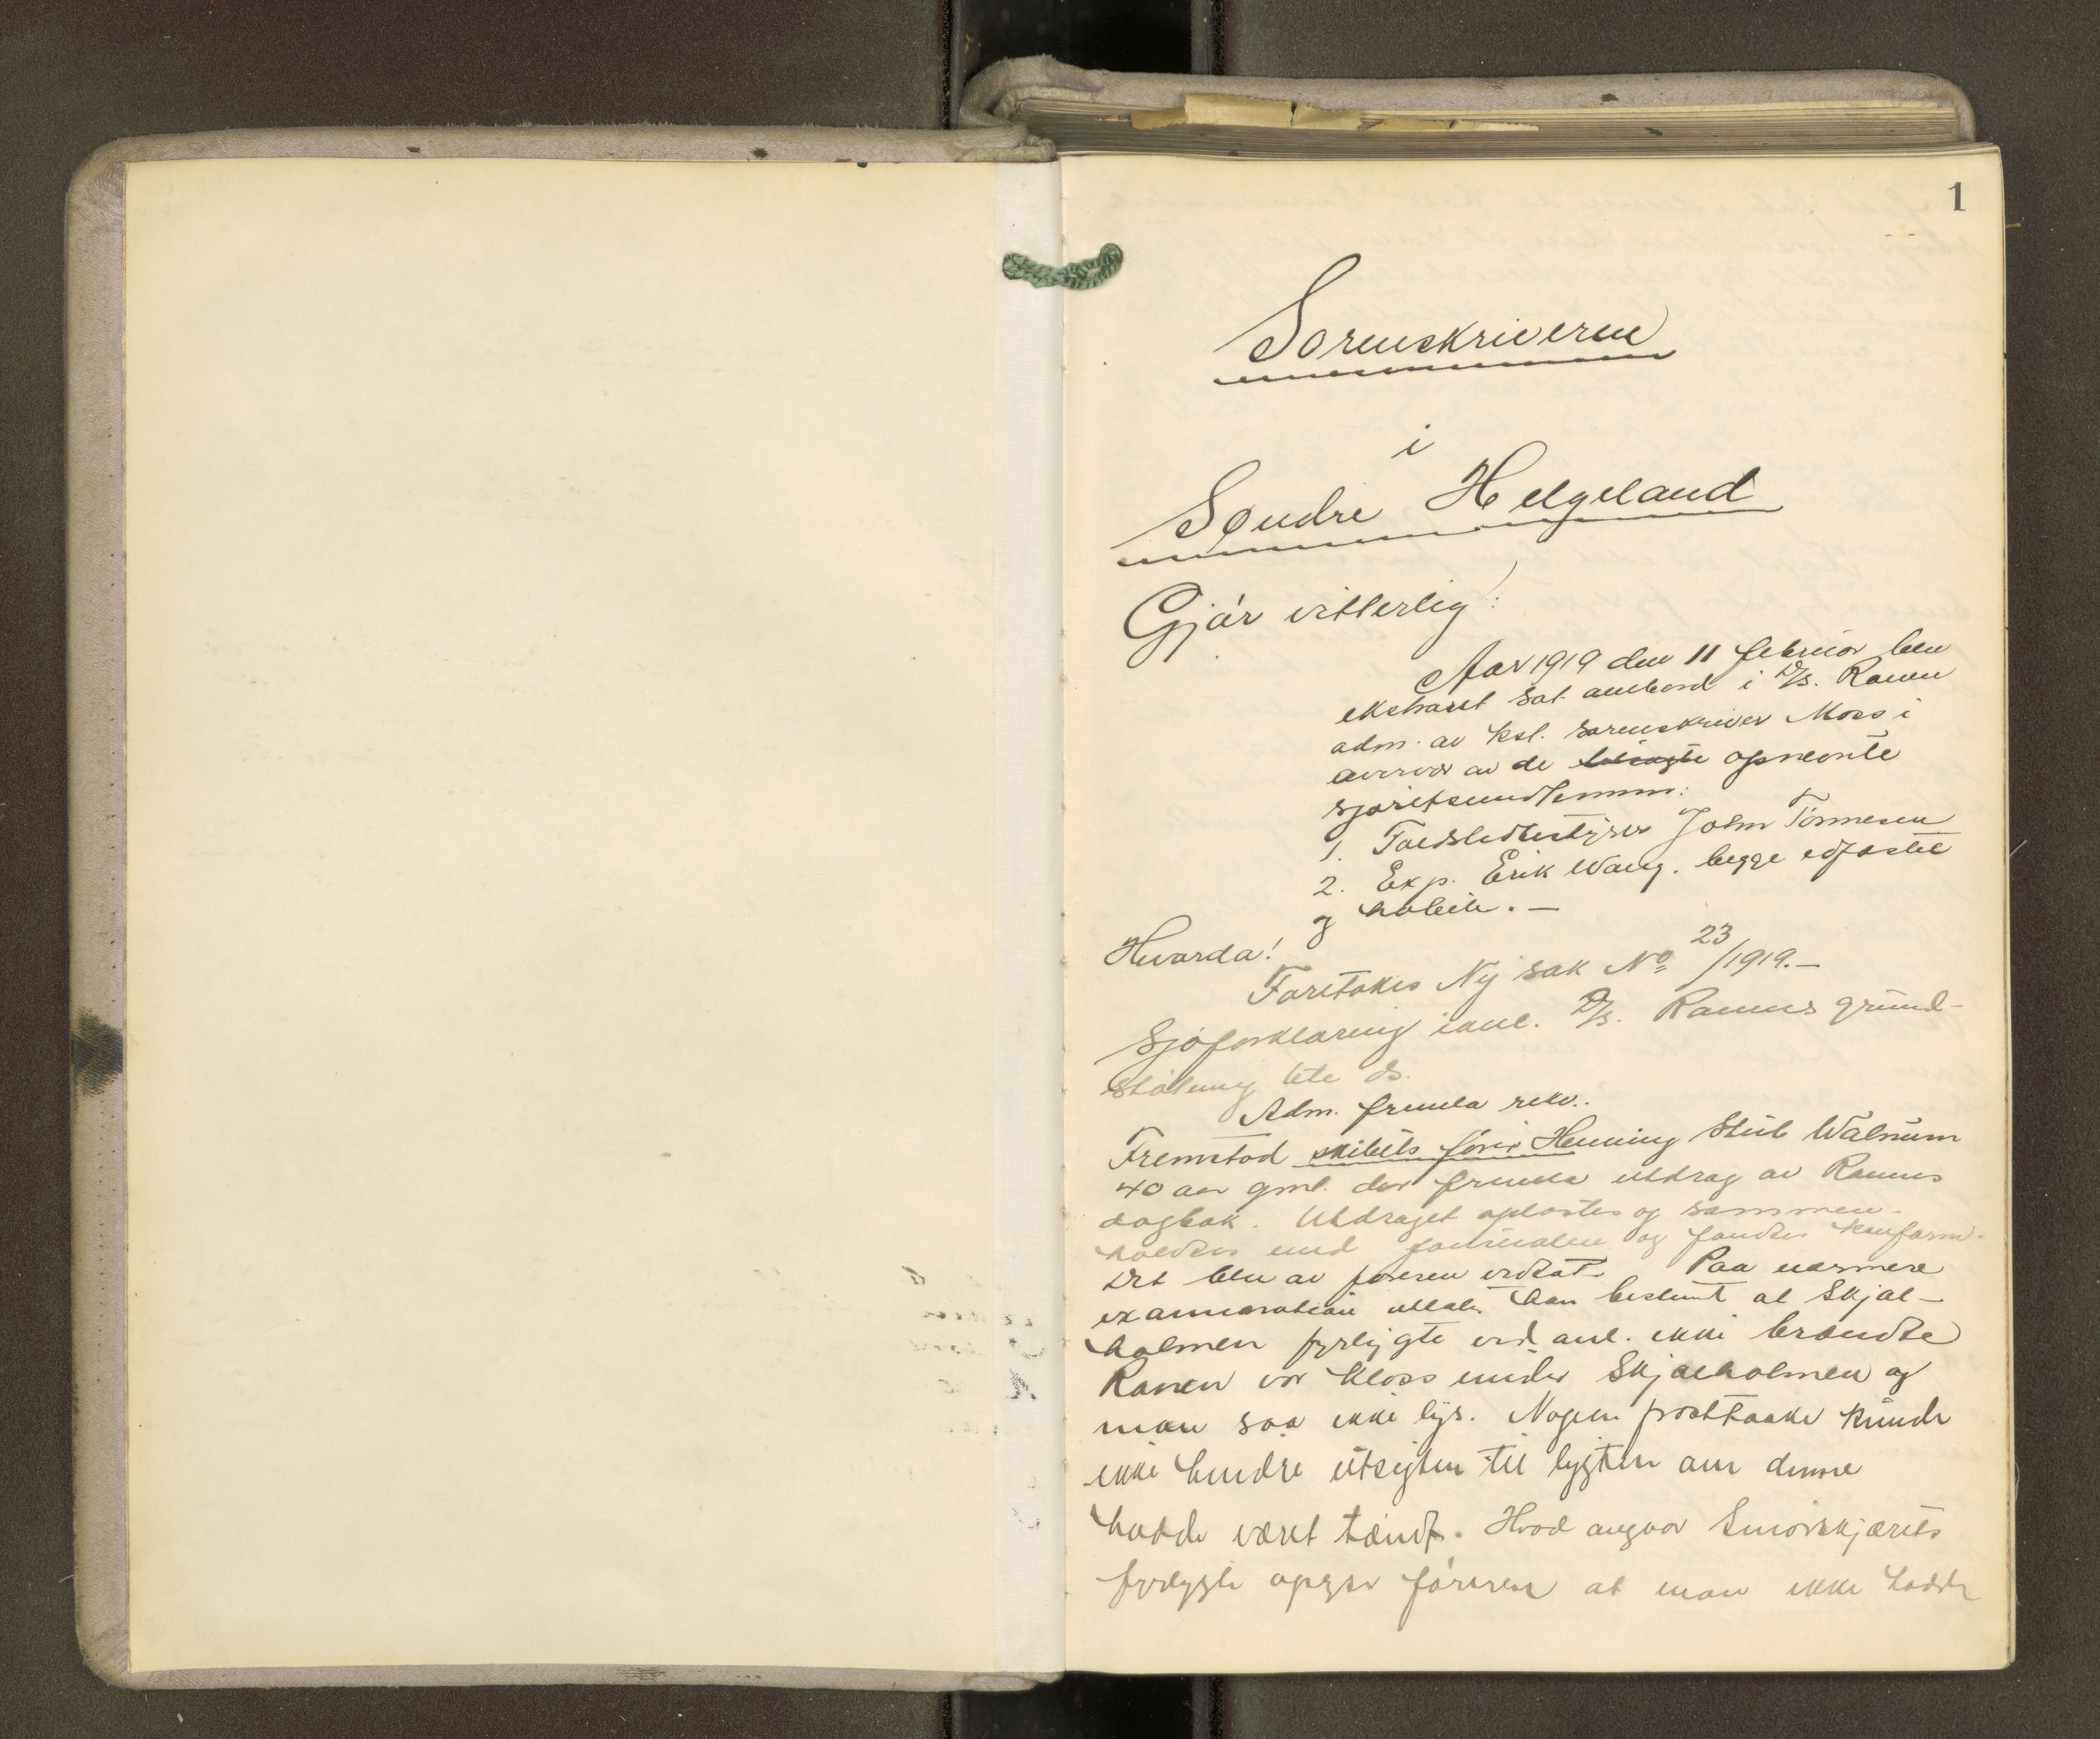 1
Sorenskriveren
i
Søndre Helgeland
Gjør vitterlig:
Aar 1919 den 11 februar blev
ekstraret sat ombord i D/S. Ranen
adm. av kst. sorenskriver Moss i
overvær av de opnevnte
sjøretsmedlemmer:
1. John Tönnesen
2. Exp. Erik Wang. begge edfæstet
og habile. —
Hvorda!
Foretokes Ny sak No 23/1919. —
Sjøforklaring i anl. D/S. Ranens grund-
støtning
Adm. fremla rekv.
Fremstod skibets fører Henning Stub Walnum
40 aar gml. der fremla utdrag av Ranens
dagbok. Utdraget oplæstes og sammen-
holdtes med journalen og fandtes konform.
Det blev av føreren vedtat. Paa nærmere
examination uttaler han bestemt at Skjæl-
holmen fyrlygte ved anl. ikke brændte
Ranen var kloss under Skjælholmen og
man saa ikke lys. Nogen frosttaake kunde
ikke hindre utsigten til lygten om denne
hadde været tændt. Hvad angaar Smörskjærets
fyrlygte opgir føreren at man ikke hadde